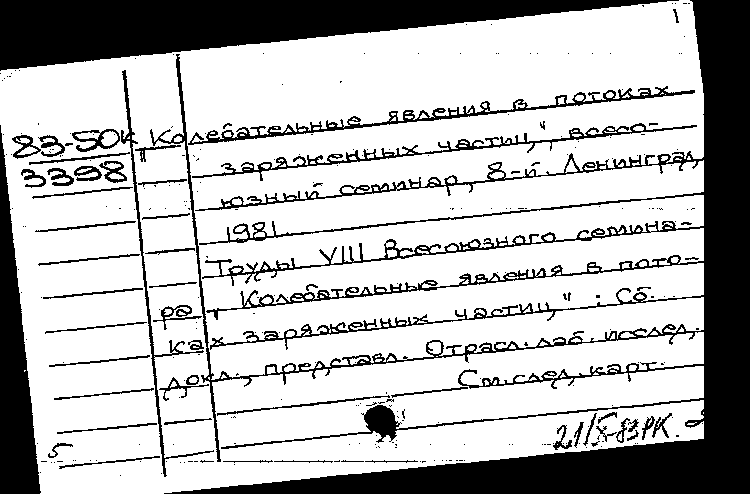 1
83-50к
3398
„Колебательные явления в потоках
заряженных частиц", всесо-
юзный семинар, 8-й. Ленинград,
1981.
Труды VIII Всесоюзного семина-
ра „Колебательные явления в пото-
ках заряженных частиц" : Сб.
докл., представл. Отрасл. лаб. исслед.
См. след. карт.
5
21/X-83 РК.